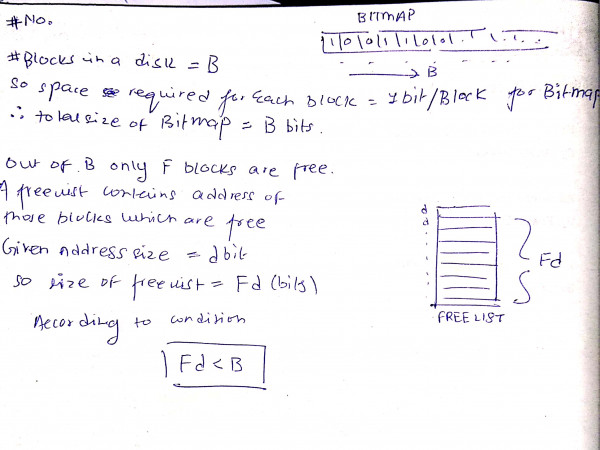 #No.
BITMAP
1|0|0|1|1|0|0|.
#Blocks in a disk = B
→ B
So space required for Each block = 1bit/Block for Bitmap
∴ total size of Bitmap = B bits.
Out of B only F blocks are free.
A freelist contains address of
those blocks which are free
Given Address size = d bit
so size of freelist = Fd (bits)
According to condition
Fd < B
d
d
Fd
FREE LIST